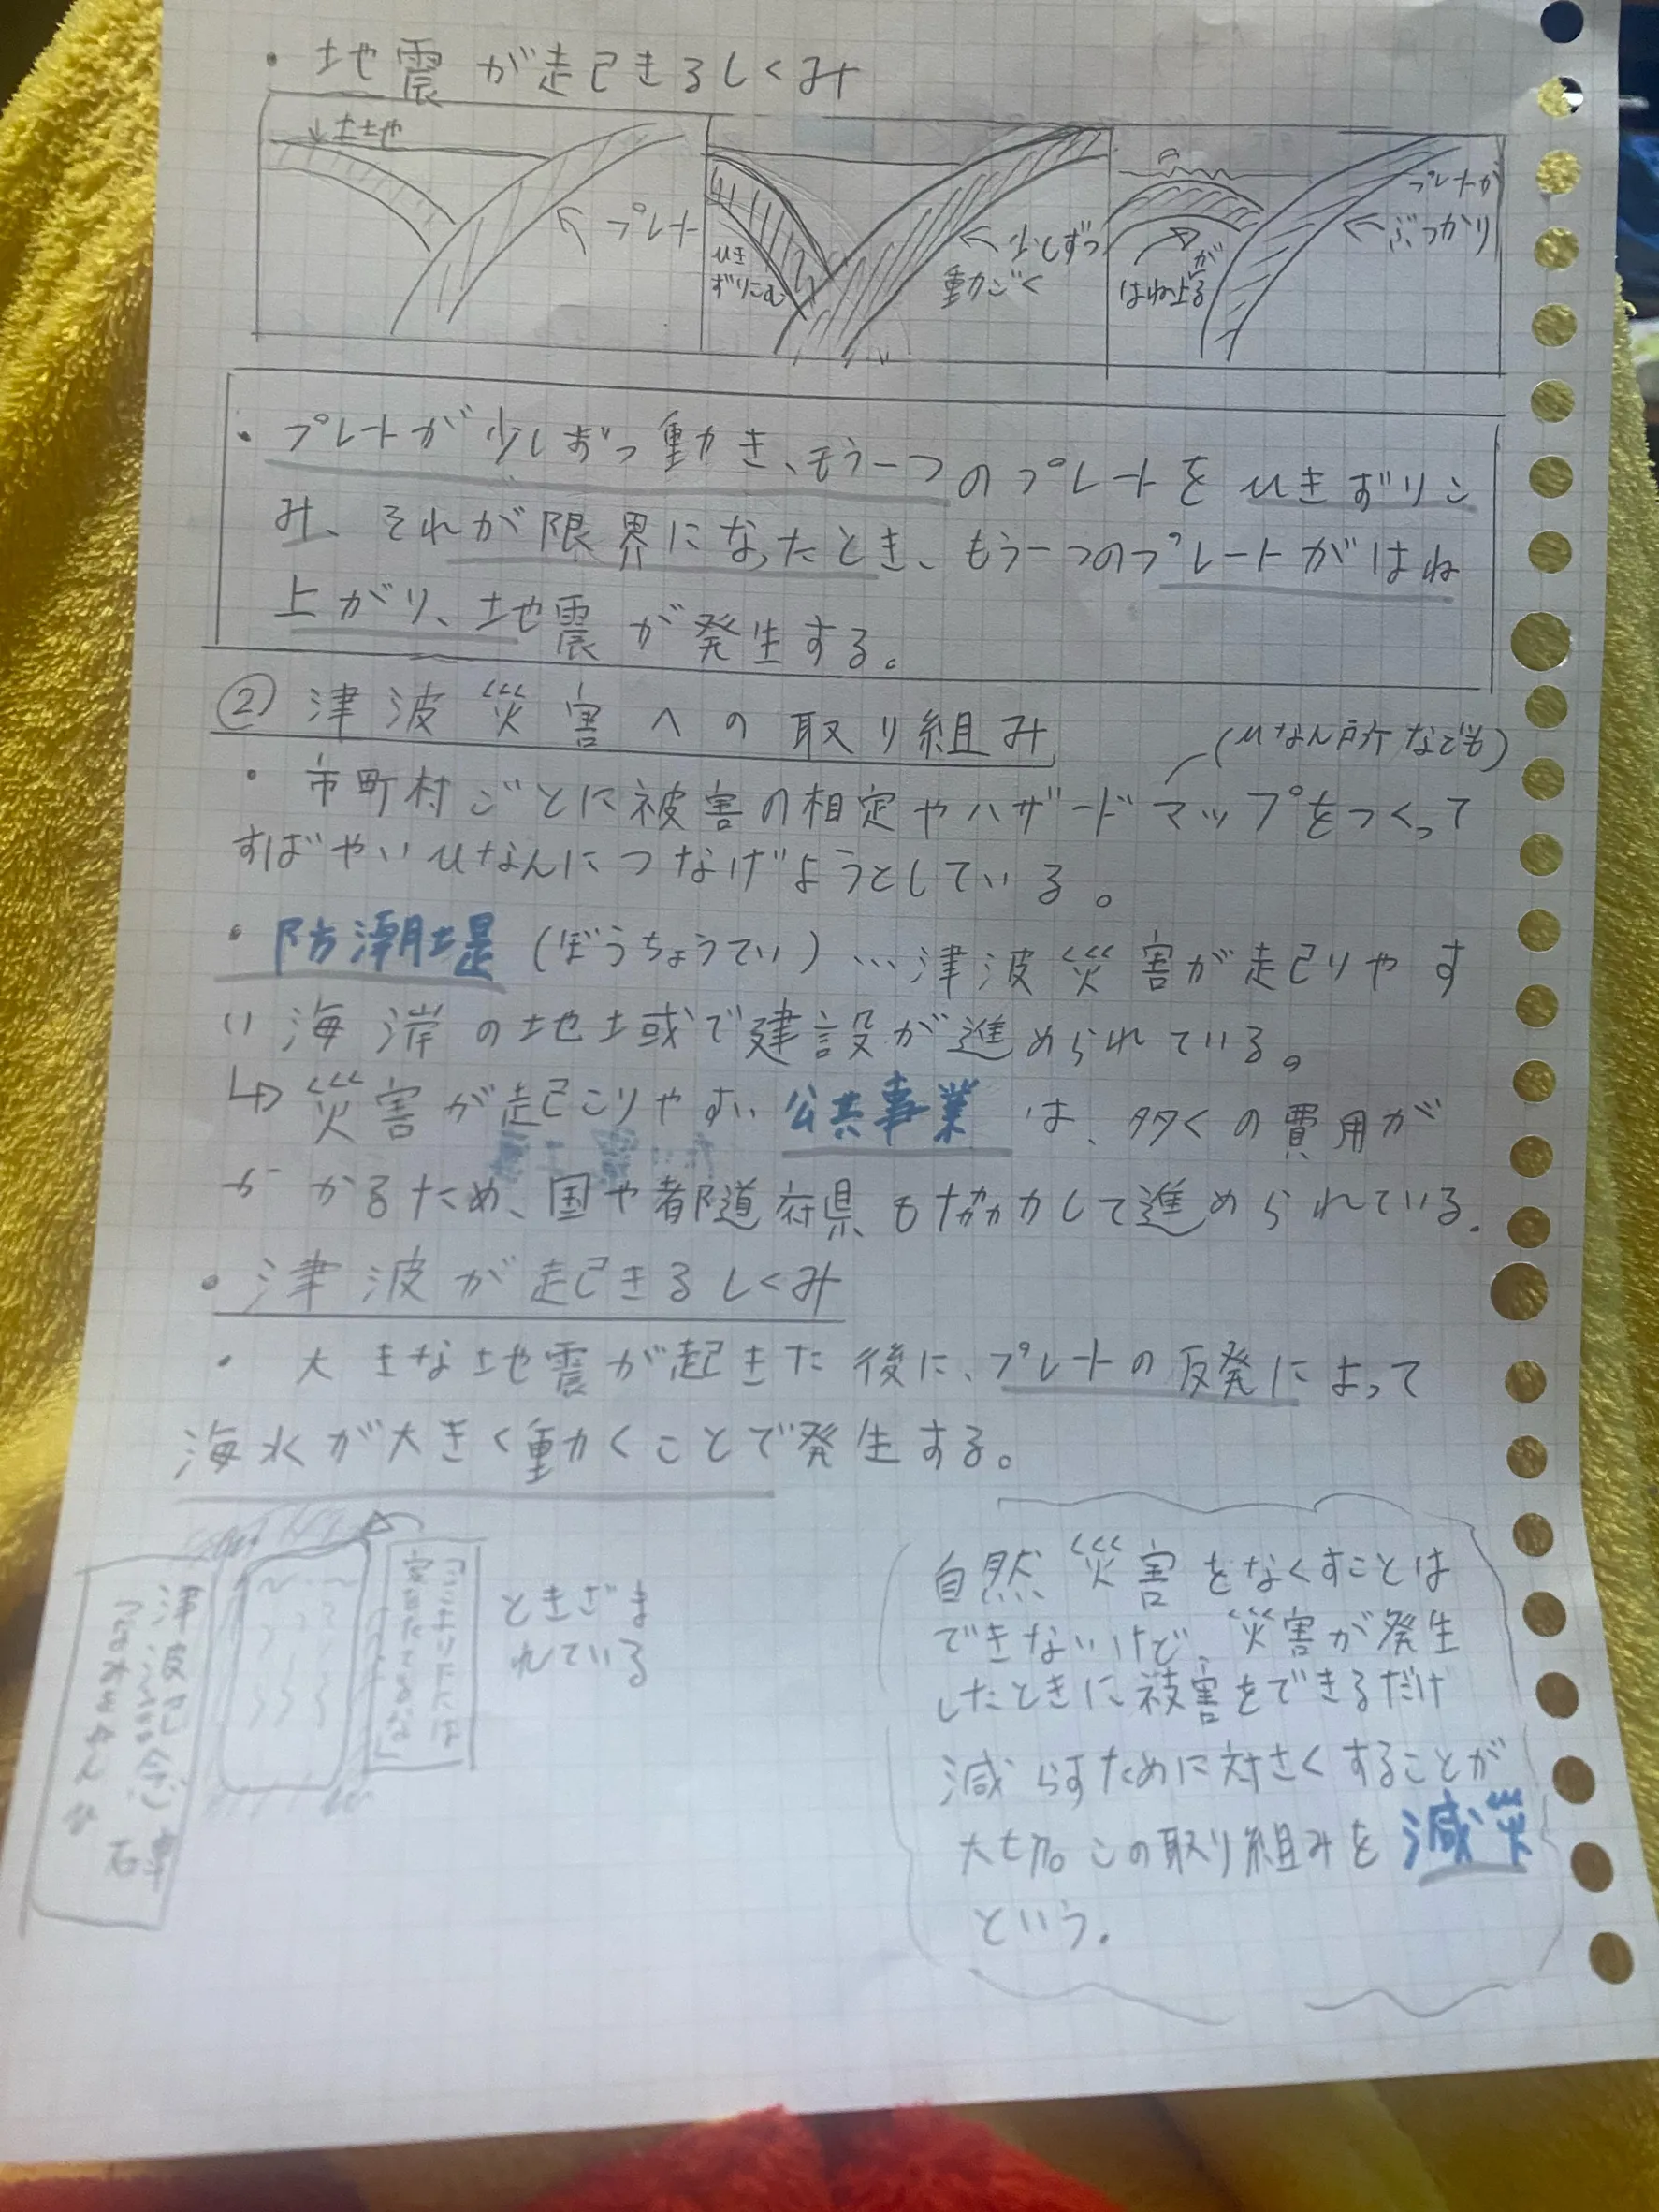 ・地震が起きるしくみ
↓土地
プレート
ひき
ずりこむ
少しずつ
動ごく
プレートが
ぶつかり
はね上がる
・プレートが少しずつ動き、もう一つのプレートをひきずりこ
み、それが限界になったとき、もう一つのプレートがはね
上がり、地震が発生する。
②津波災害への取り組み
(ひなん所なども)
・市町村ごとに被害の相定やハザードマップをつくって
すばやいひなんにつなげようとしている。
・防潮堤(ぼうちょうてい)…津波災害が起こりやす
い海岸の地域で建設が進められている。
↳災害が起こりやすい公共事業は、多くの費用が
かかるため、国や都道府県も協力して進められている.
・津波が起きるしくみ
・大きな地震が起きた後に、プレートの反発によって
海水が大きく動くことで発生する。
津波記念碑
つなみきねんひ
「ここより下には
家をたてるな」
ときざま
れている
自然災害をなくすことは
できないけど、災害が発生
したときに被害をできるだけ
減らすために対さくすることが
大切。この取り組みを減災
という.